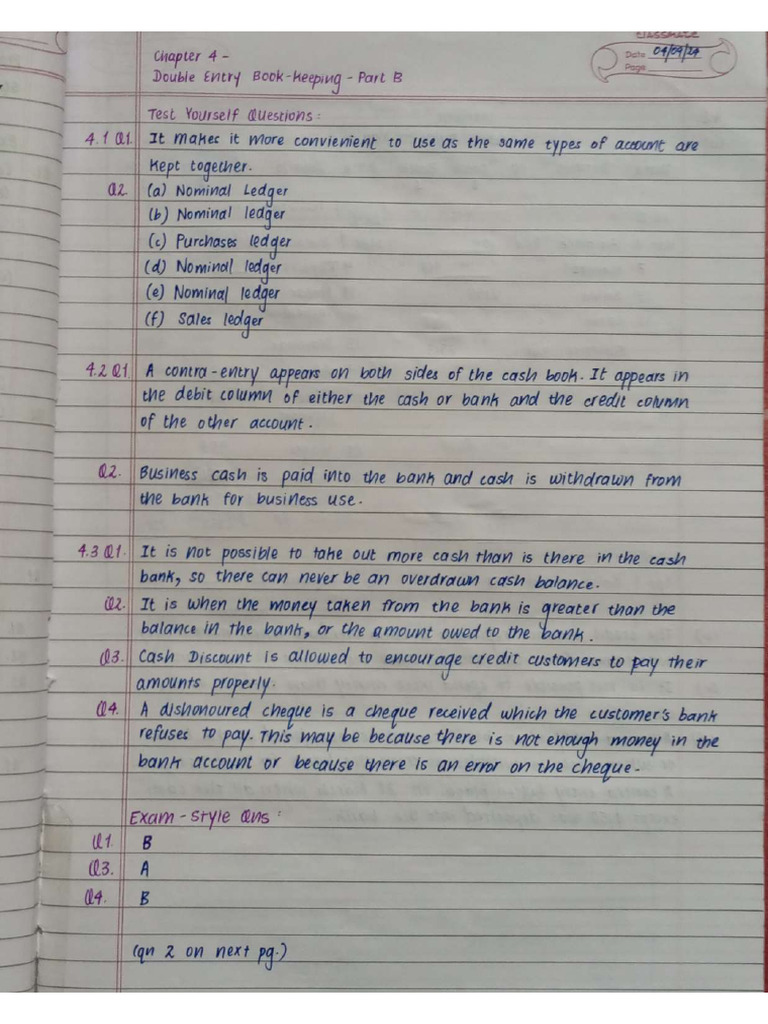 CLASSMATE
Date 04/04/24
Page
Chapter 4 -
Double Entry Book-keeping - Part B
Test Yourself Questions:
4.1 Q1. It makes it more convienient to use as the same types of account are
kept together.
Q2. (a) Nominal Ledger
(b) Nominal ledger
(c) Purchases ledger
(d) Nominal ledger
(e) Nominal ledger
(f) Sales ledger
4.2 Q1. A contra-entry appears on both sides of the cash book. It appears in
the debit column of either the cash or bank and the credit column
of the other account.
Q2. Business cash is paid into the bank and cash is withdrawn from
the bank for business use.
4.3 Q1. It is not possible to take out more cash than is there in the cash
bank, so there can never be an overdrawn cash balance.
Q2. It is when the money taken from the bank is greater than the
balance in the bank, or the amount owed to the bank.
Q3. Cash Discount is allowed to encourage credit customers to pay their
amounts properly.
Q4. A dishonoured cheque is a cheque received which the customer's bank
refuses to pay. This may be because there is not enough money in the
bank account or because there is an error on the cheque.
Exam-Style Qns:
Q1 B
Q3. A
Q4. B
(qn 2 on next pg.)